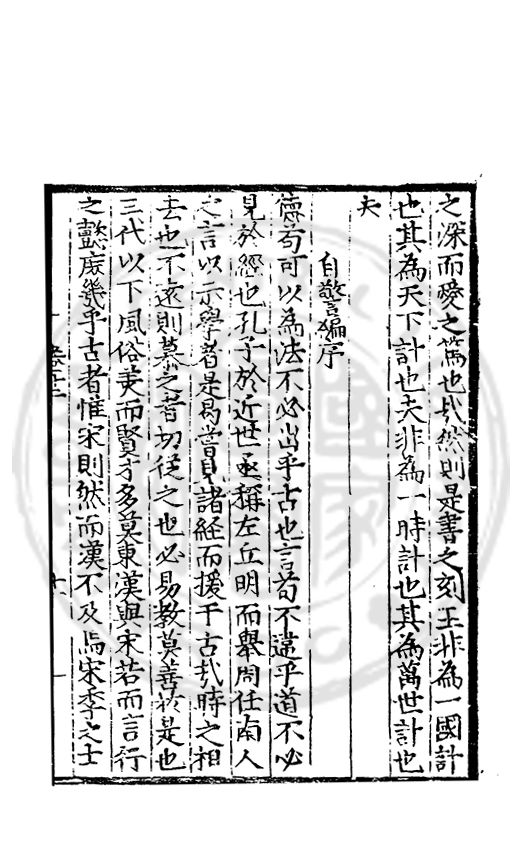 之深而愛之篤也哉然則是書之刻王非為一國計
也其為天下計也夫非為一時計也其為萬世計也
夫
自警編序
德苟可以為法不必出乎古也言苟不違乎道不必
見於經也孔子於近世亟稱左丘明而舉周任南人
之言以示學者是曷嘗見諸経而援于古哉時之相
去也不遠則慕之者切從之也必易教莫善於是也
三代以下風俗美而賢才多莫東漢與宋若而言行
之懿庶幾乎古者惟宋則然而漢不及焉宋季之士